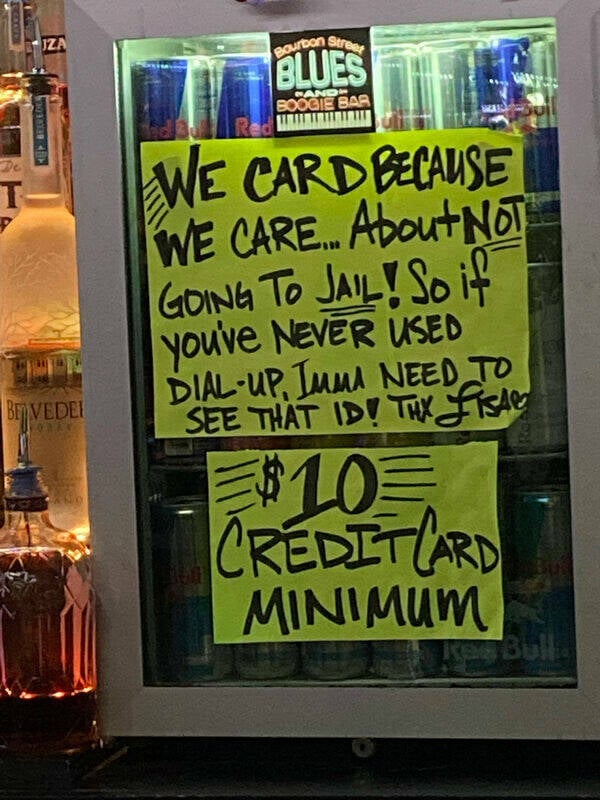 UZA
Bourbon Street
BLUES
AND
BOOGIE BAR
Red
WE CARD BECAUSE
WE CARE... About NOT
GOING TO JAIL! So if
you've NEVER USED
DIAL-UP, IMMA NEED TO
SEE THAT ID! THX LISA
$10
CREDIT CARD
MINIMUM
BELVEDERE
Red Bull